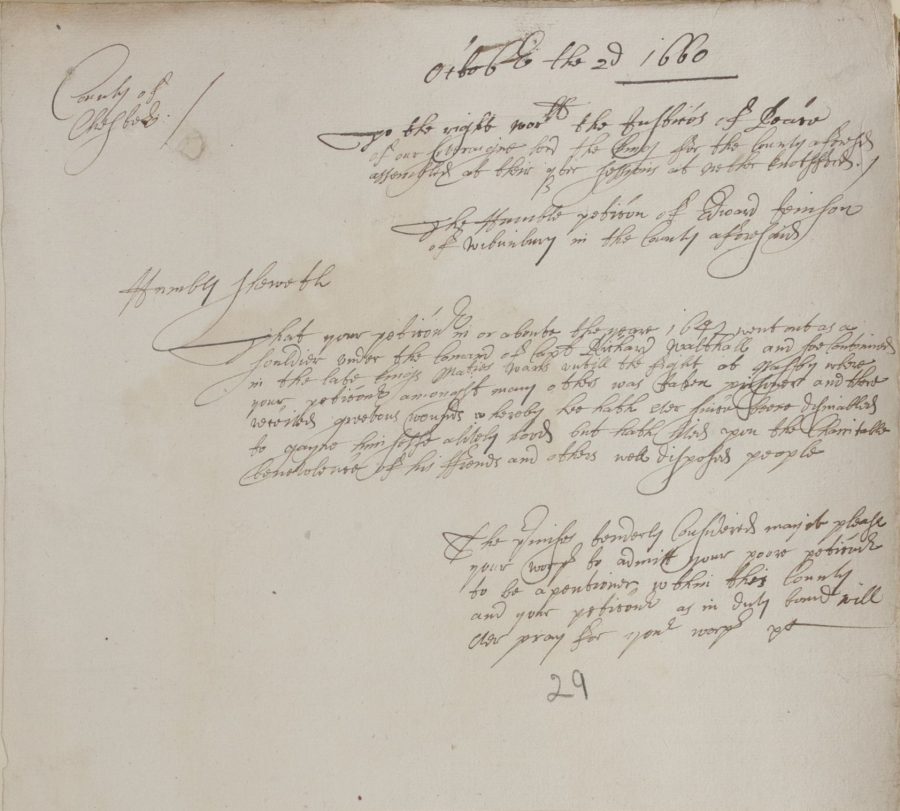 Octobr the 2d 1660
County of
Chester
To the right worpll the Justices of Peace
of our soveraigne lord the Kings for the County aforesd
assembled at their qter sessions at nether Knottsford
The Humble peticon of Edward
of Wibunbury in the County aforesaid
Humbly sheweth
That your peticonr in or aboute the yeare 1642 went out as a
souldier under the comand of Capt Richard Walthall and soe continued
in the late Kings Maties warrs untill the fight at Nasby where
your peticonr amongst many others was taken prisoner and there
received greevous wounds whereby hee hath ever since beene disinabled
to gayne himselfe a lively hood but hath lived upon the Charitable
benevolence of his ffriends and others well disposed people
The p'misses tenderly Considered may it please
your worps to admitt your poore peticonr
to be a pentioner within this County
and your peticonr as in duty bound will
ever pray for your worps &c
29